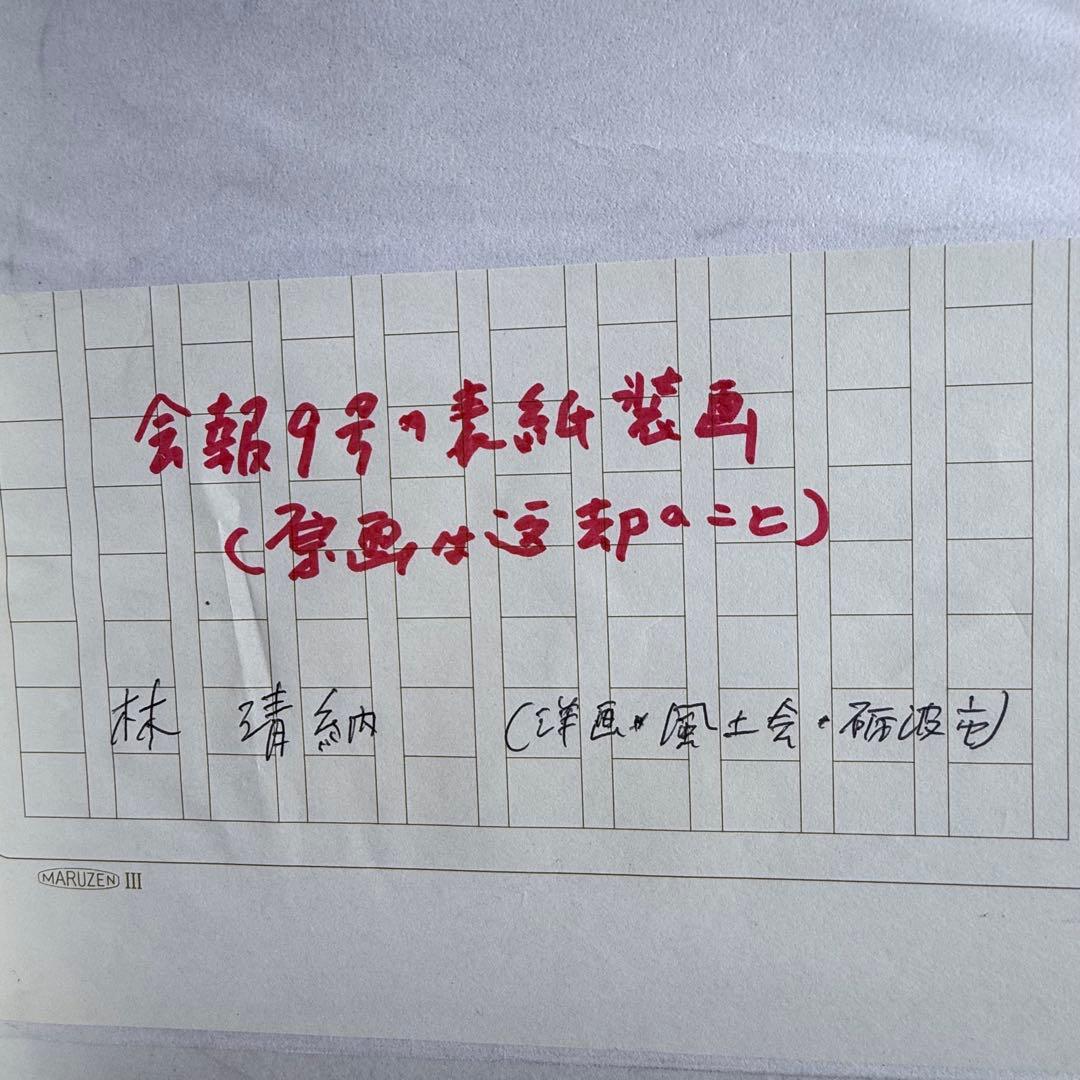 会報9号の表紙装画
(原画は返却のこと)
林 清納 (洋画・風土会・砺波市)
MARUZEN III